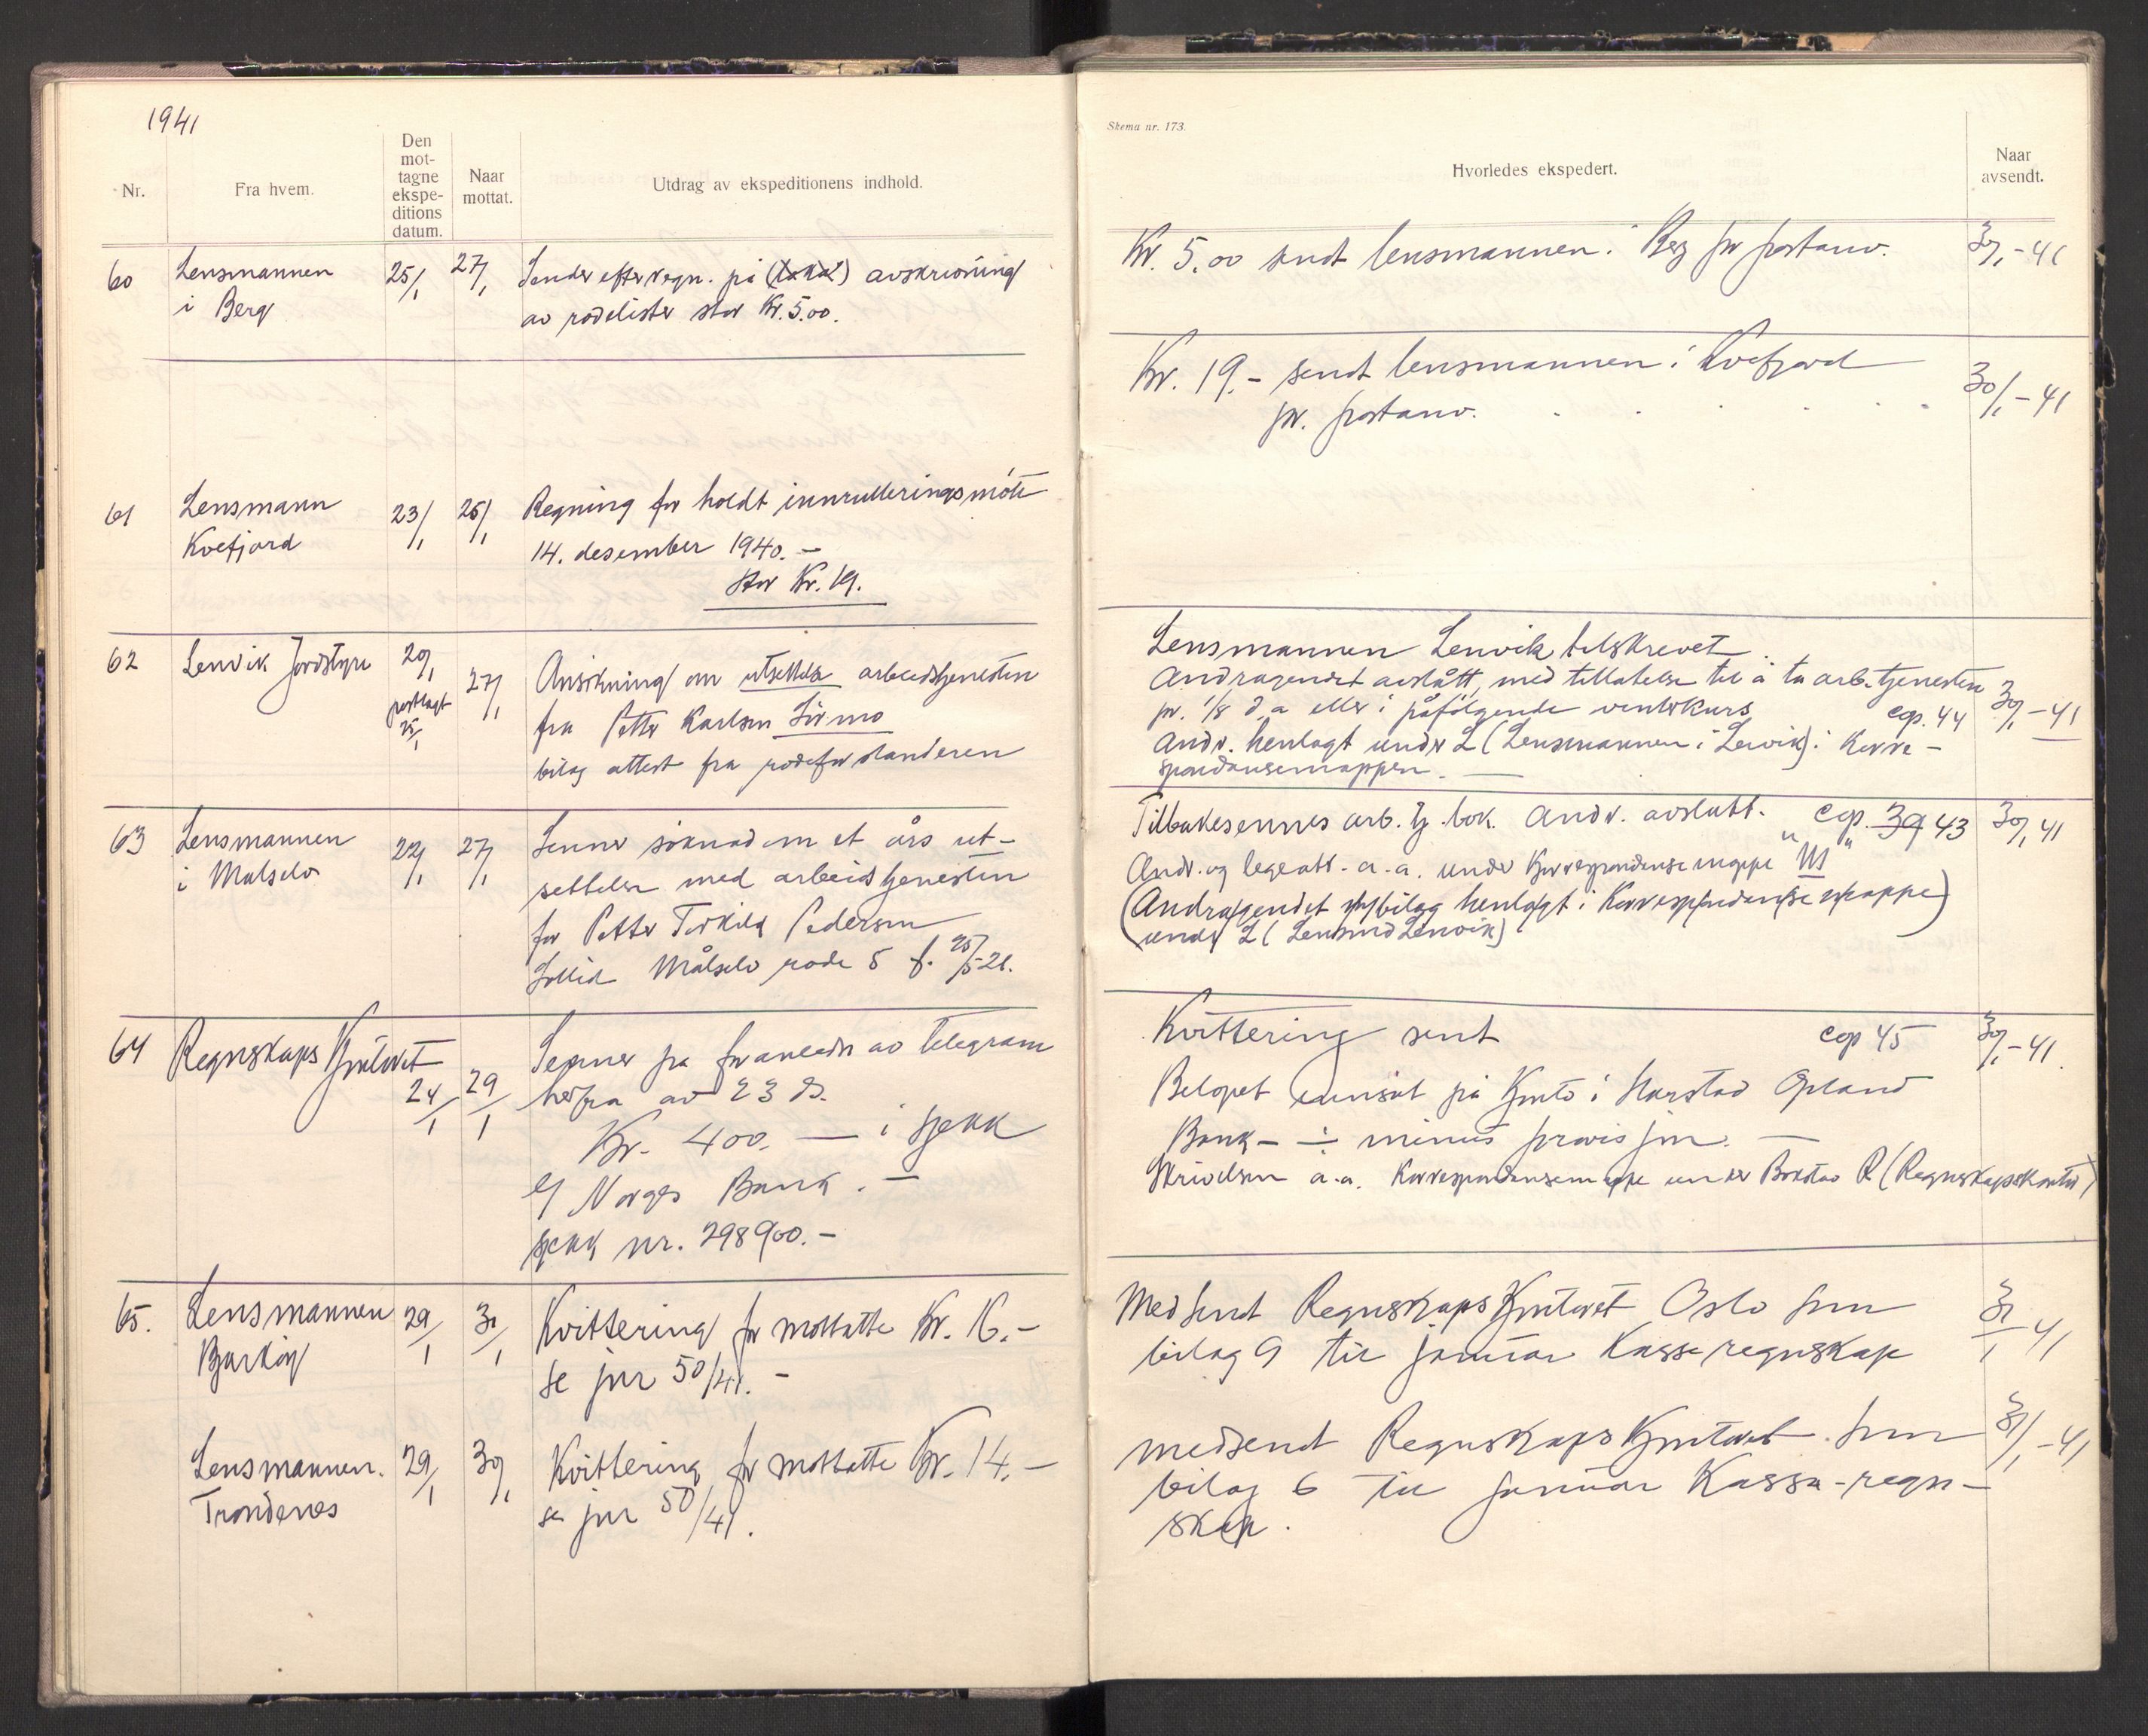 1941
Nr.
Fra hvem.
Den
mot-
tagne
ekspe-
ditions
datum.
Naar
mottat.
Utdrag av ekspeditionens indhold.
60
Lensmannen
i Berg
25/1
27/1
Sender efter regn. på avskrivning
av rodelister stor Kr. 5.00.
61
Lensmann
Kvefjord
23/1
Regning for holdt innrulleringsmöte
14. desember 1940. –
stor Kr. 19.
62
Lenvik Jordstyre
postlagt
25/1
27/1
Ansökning om utsettelse arbeidstjenesten
fra Petter Karlsen
bilag attest fra rodeforstanderen
63
Lensmannen
i Målselv
22/1
27/1
söknad om et års ut-
settelse med arbeidstjenesten
for Petter Pedersen
Målselv rode 5 f. 25/5-21.
64
Regnskapskontoret
24/1
29/1
på av telegram
herfra av 23 ds.
Kr. 400. — i sjekk
Norges Bank. –
sjekk nr. 298900.–
65.
Lensmannen
Bjarköy
29/1
Kvittering for mottatte Kr. 16.–
se jnr 50/41. –
Lensmannen.
Trondenes
29/1
30/1
Kvittering for mottatte Kr. 14.–
se jnr 50/41.
Skema nr. 173.
Hvorledes ekspedert.
Naar
avsendt.
Kr. 5.00 sendt lensmannen i Berg pr postanv.
30/1-41
Kr. 19.– sendt lensmannen i Kvefjord
30/1-41
pr. postanv.
Lensmannen Lenvik tilskrevet.
Andragendet avslått, med tillatelse til å ta arb.tjenesten
pr. 1/8 d.a eller i påfölgende vinterkurs
cop. 44
30/1-41
Andr. henlagt under L (Lensmannen i Lenvik) i Korre-
spondansemappen. —
Tilbakesendes arb. tj. bok. Andr. avslått.
cop. 39 43
30/1 41
Andr. og legeatt. a.a. under Korrespondanse mappe " M "
(Andragendet m/bilag henlagt i Korrespondanse mappe)
under L (Lensmd Lenvik)
Kvittering sent
cop 45
30/1-41.
Belöpet innsat på Konto i Harstad Opland
Bank – ÷ minus provisjon. —
Skrivelsen a.a. Korrespondansemappe under Bokstav R (Regnskapskontor)
Medsendt Regnskapskontoret Oslo som
31/1 41
bilag 9 til januar Kasseregnskap
medsendt Regnskapskontoret som
31/1-41
bilag 6 til januar Kassa-regn-
skap.